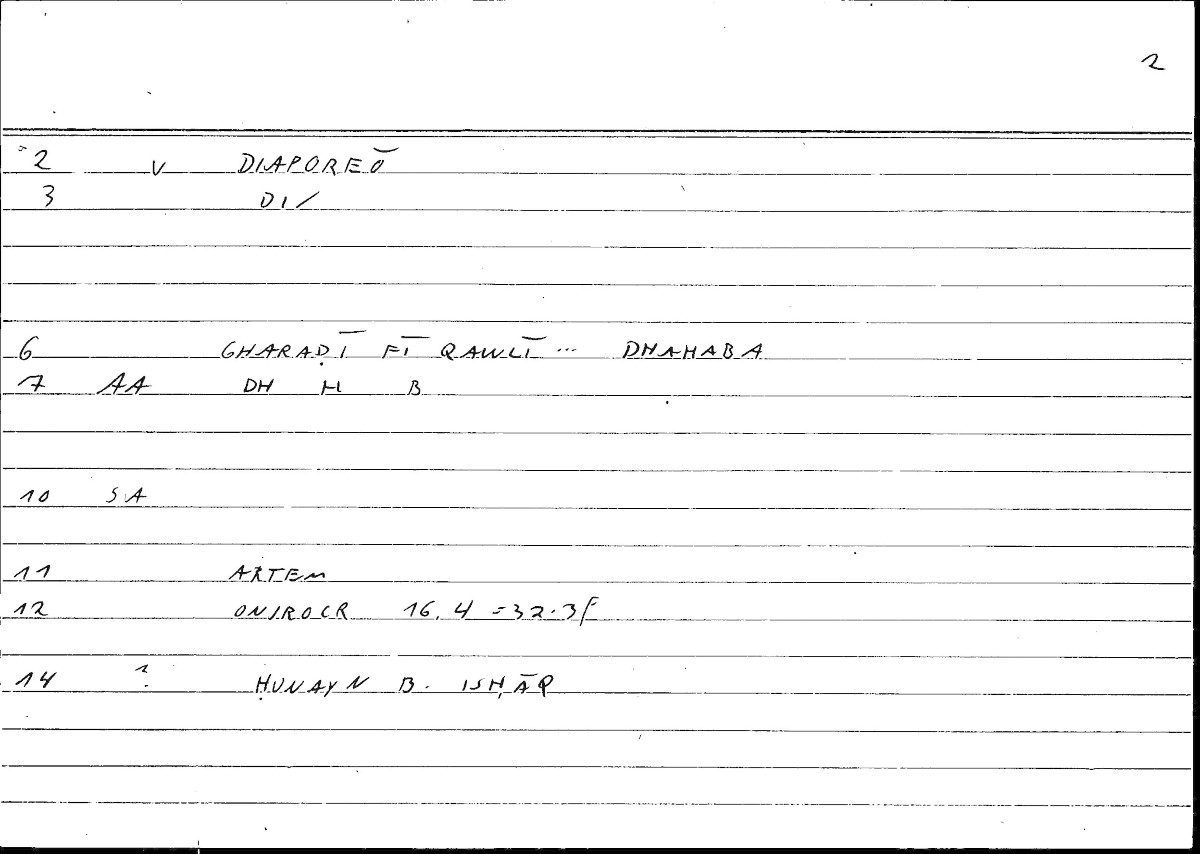 2
2 V DIAPOREŌ
3 DI/
6 GHARAḌĪ FĪ QAWLĪ ... DHAHABA
7 AA DH H B
10 SA
11 ARTEM
12 ONIROCR 16.4 =32.3f
14 ? ḤUNAYN B. ISḤĀQ